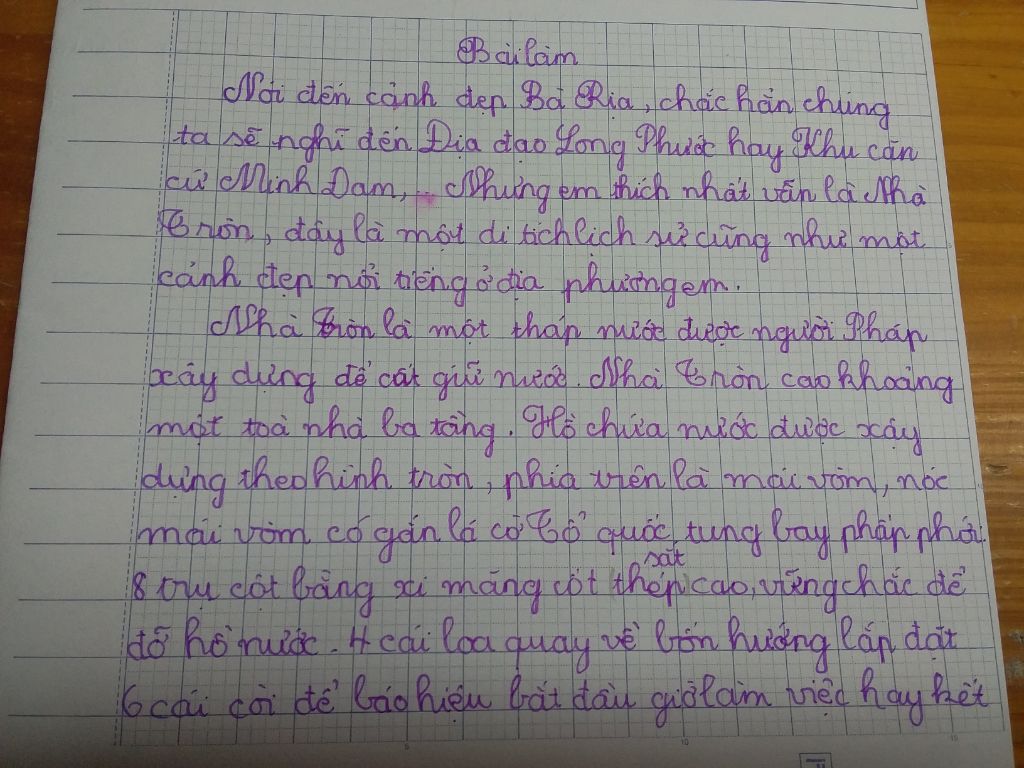 Bài làm
Nói đến cảnh đẹp Bà Rịa, chắc hẳn chúng
ta sẽ nghĩ đến Địa đạo Long Phước hay Khu căn
cứ Minh Đạm, Nhưng em thích nhất vẫn là Nhà
Tròn, đây là một di tích lịch sử cũng như một
cảnh đẹp nổi tiếng ở địa phương em.
Nhà tròn là một tháp nước được người Pháp
xây dựng để cất giữ nước. Nhà tròn cao khoảng
một toà nhà ba tầng. Hồ chứa nước được xây
dựng theo hình tròn, phía trên là mái vòm, nóc
mái vòm có gắn lá cờ Tổ quốc tung bay phấp phới.
sắt
8 trụ cột bằng xi măng cột thép cao, vững chắc để
đỡ hồ nước. 4 cái loa quay về bốn hướng lắp đặt
6 cái còi để báo hiệu bắt đầu giờ làm việc hay kết